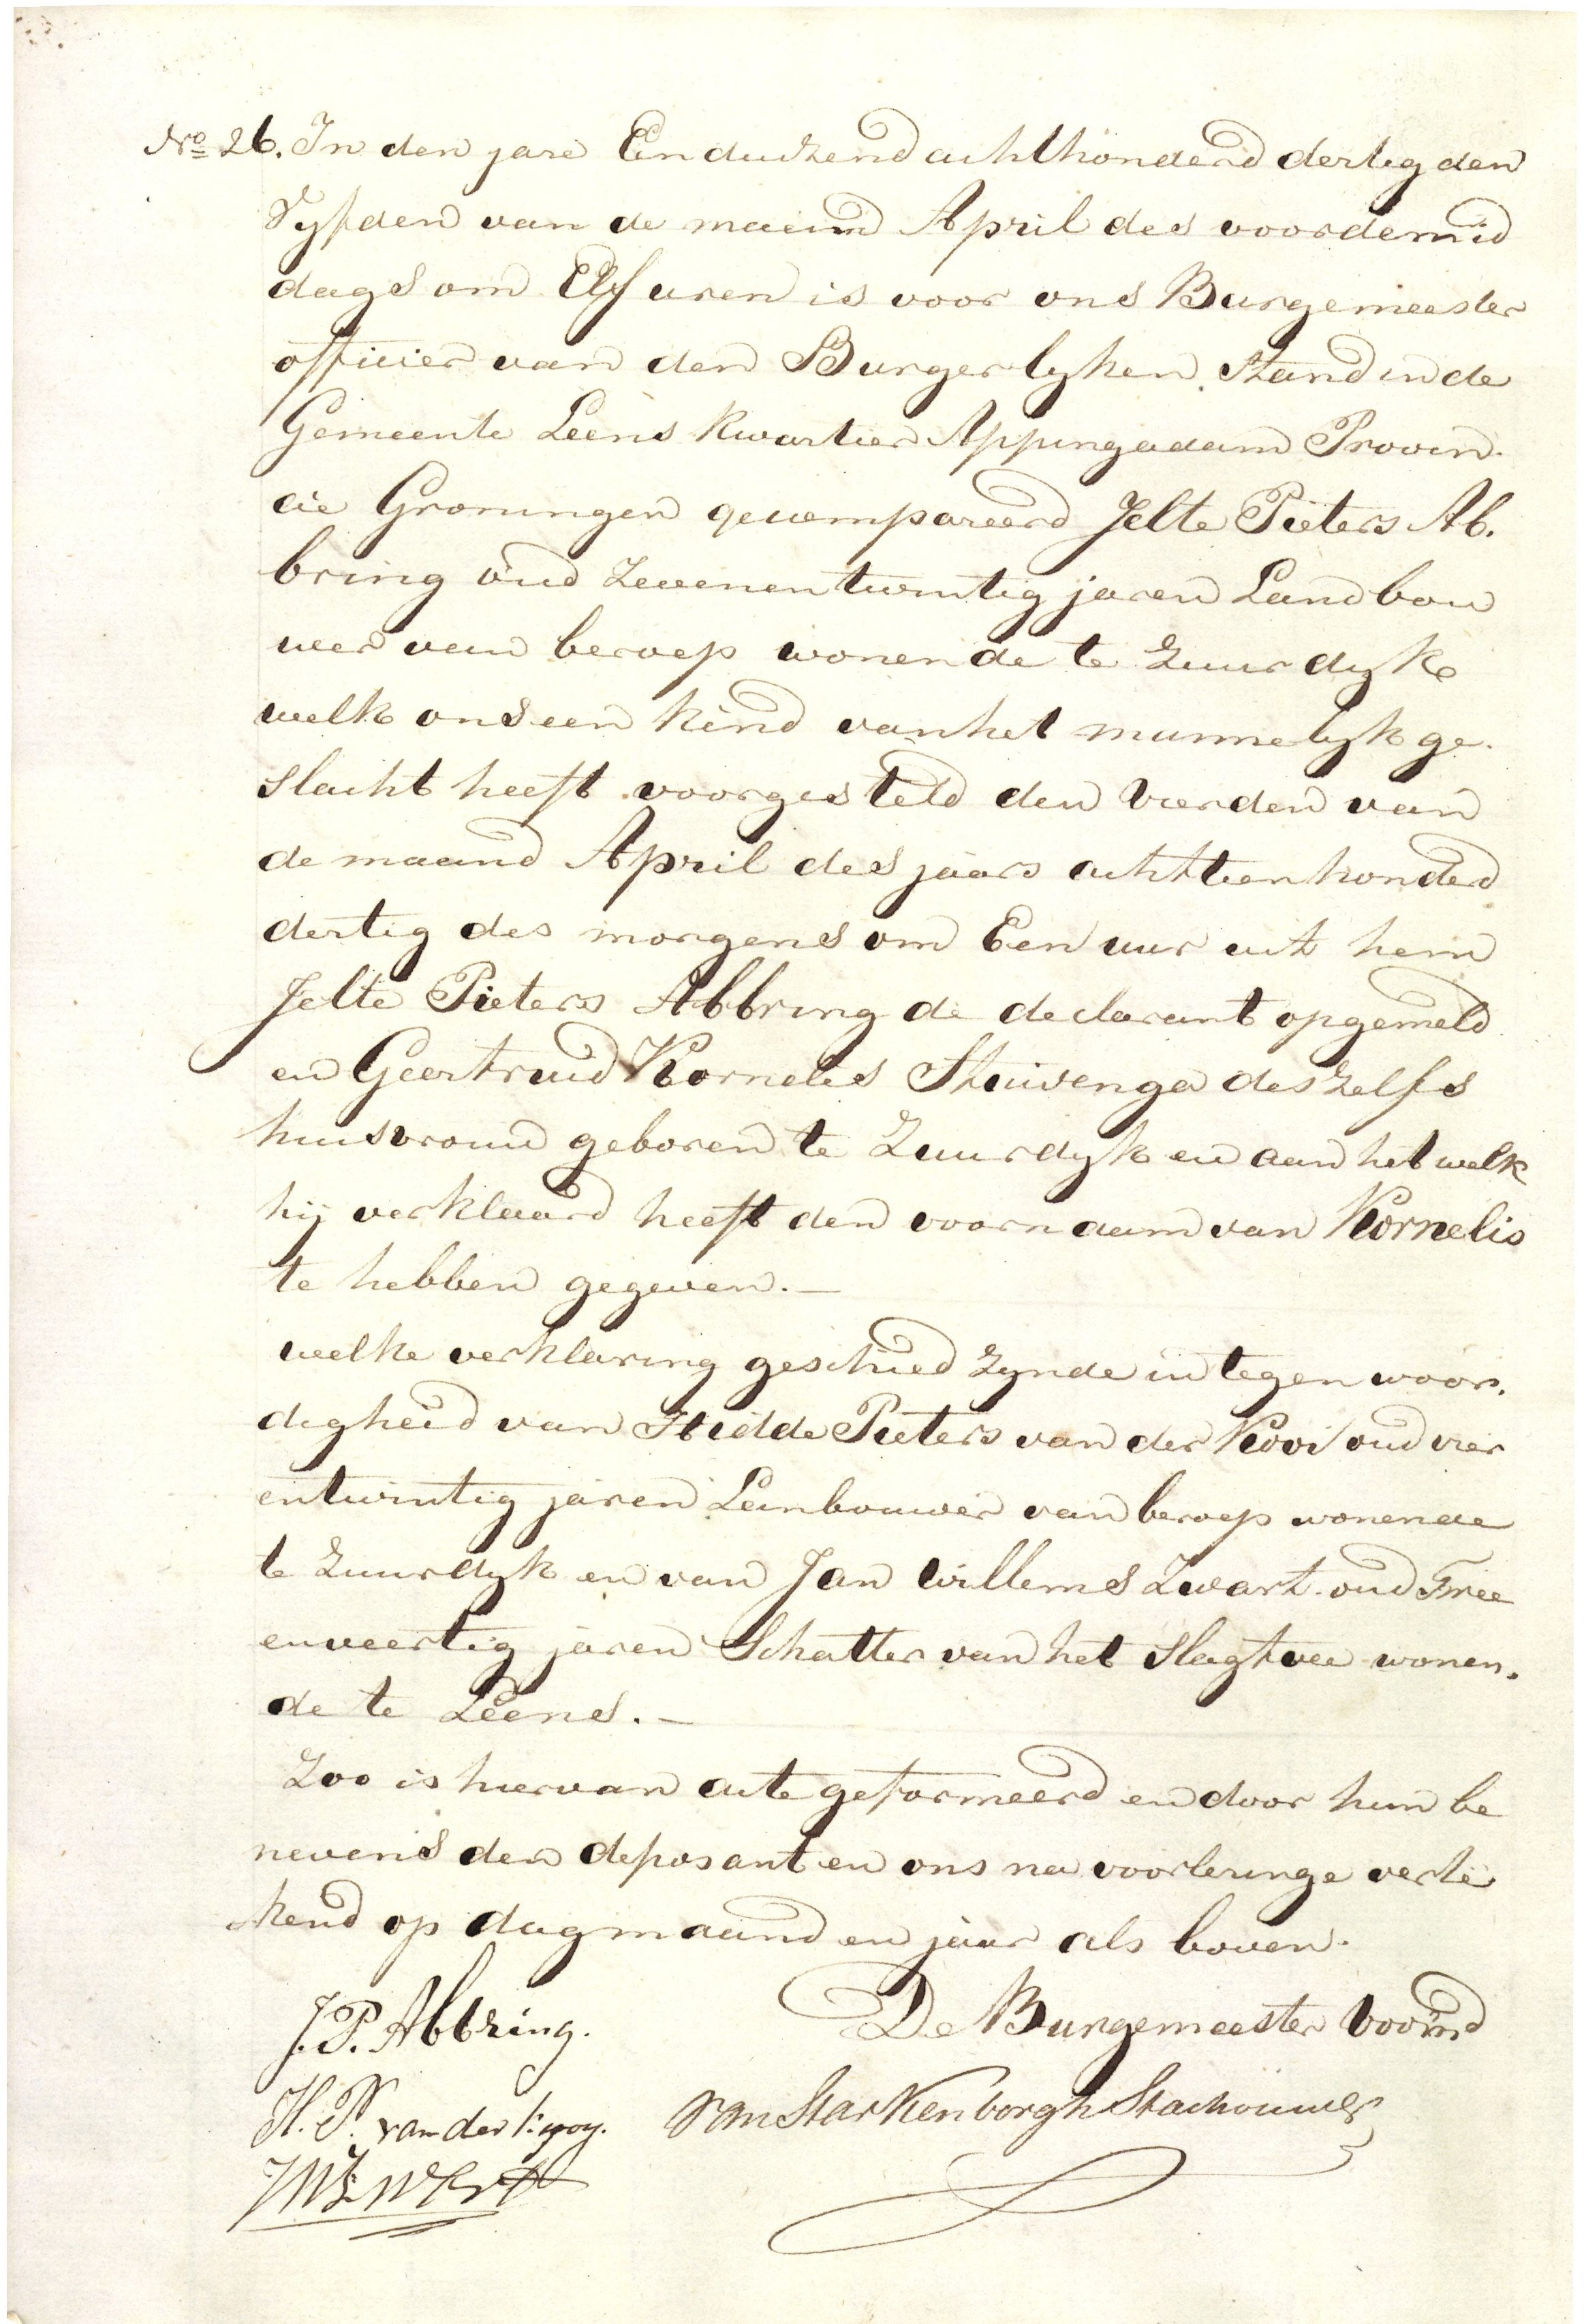 No 26. In den jare Eenduizend achthonderd dertig den
Vyfden van de maand April des voordemid
dags om Elf uren is voor ons Burgemeester
officier van den Burgerlyken Stand in de
Gemeente Leens Kwartier Appingadam Provin-
cie Groningen gecompareerd Jelte Pieters Ab-
bring oud Zevenentwintig jaren Landbou
wer van beroep wonende te Zuurdyk
welk ons een kind van het mannelyk ge-
slacht heeft voorgesteld den Vierden van
de maand April des jaars achttienhonderd
dertig des morgens om Een uur uit hem
Jelte Pieters Abbring de declarant opgemeld
en Geertruid Kornelis Stuivenga deszelfs
huisvrouw geboren te Zuurdyk en aan het welk
hij verklaard heeft den voornaam van Kornelis
te hebben gegeven.—
welke verklaring geschied zynde in tegenwoor-
digheid van Hidde Pieters van der Kooi oud vier
entwintig jaren Lanbouwer van beroep wonende
te Zuurdyk en van Jan Willems Zwart oud Twee
enveertig jaren Schatter van het Slagtvee wonen-
de te Leens.—
Zoo is hiervan acte geformeerd en door hun be
nevens den deposant en ons na voorlezinge verte
kend op dag maand en jaar als boven.
J. P. Abbring.
De Burgemeester voornd
H. P. van der Kooy.
van Starkenborgh Stachouwer
JWZwart